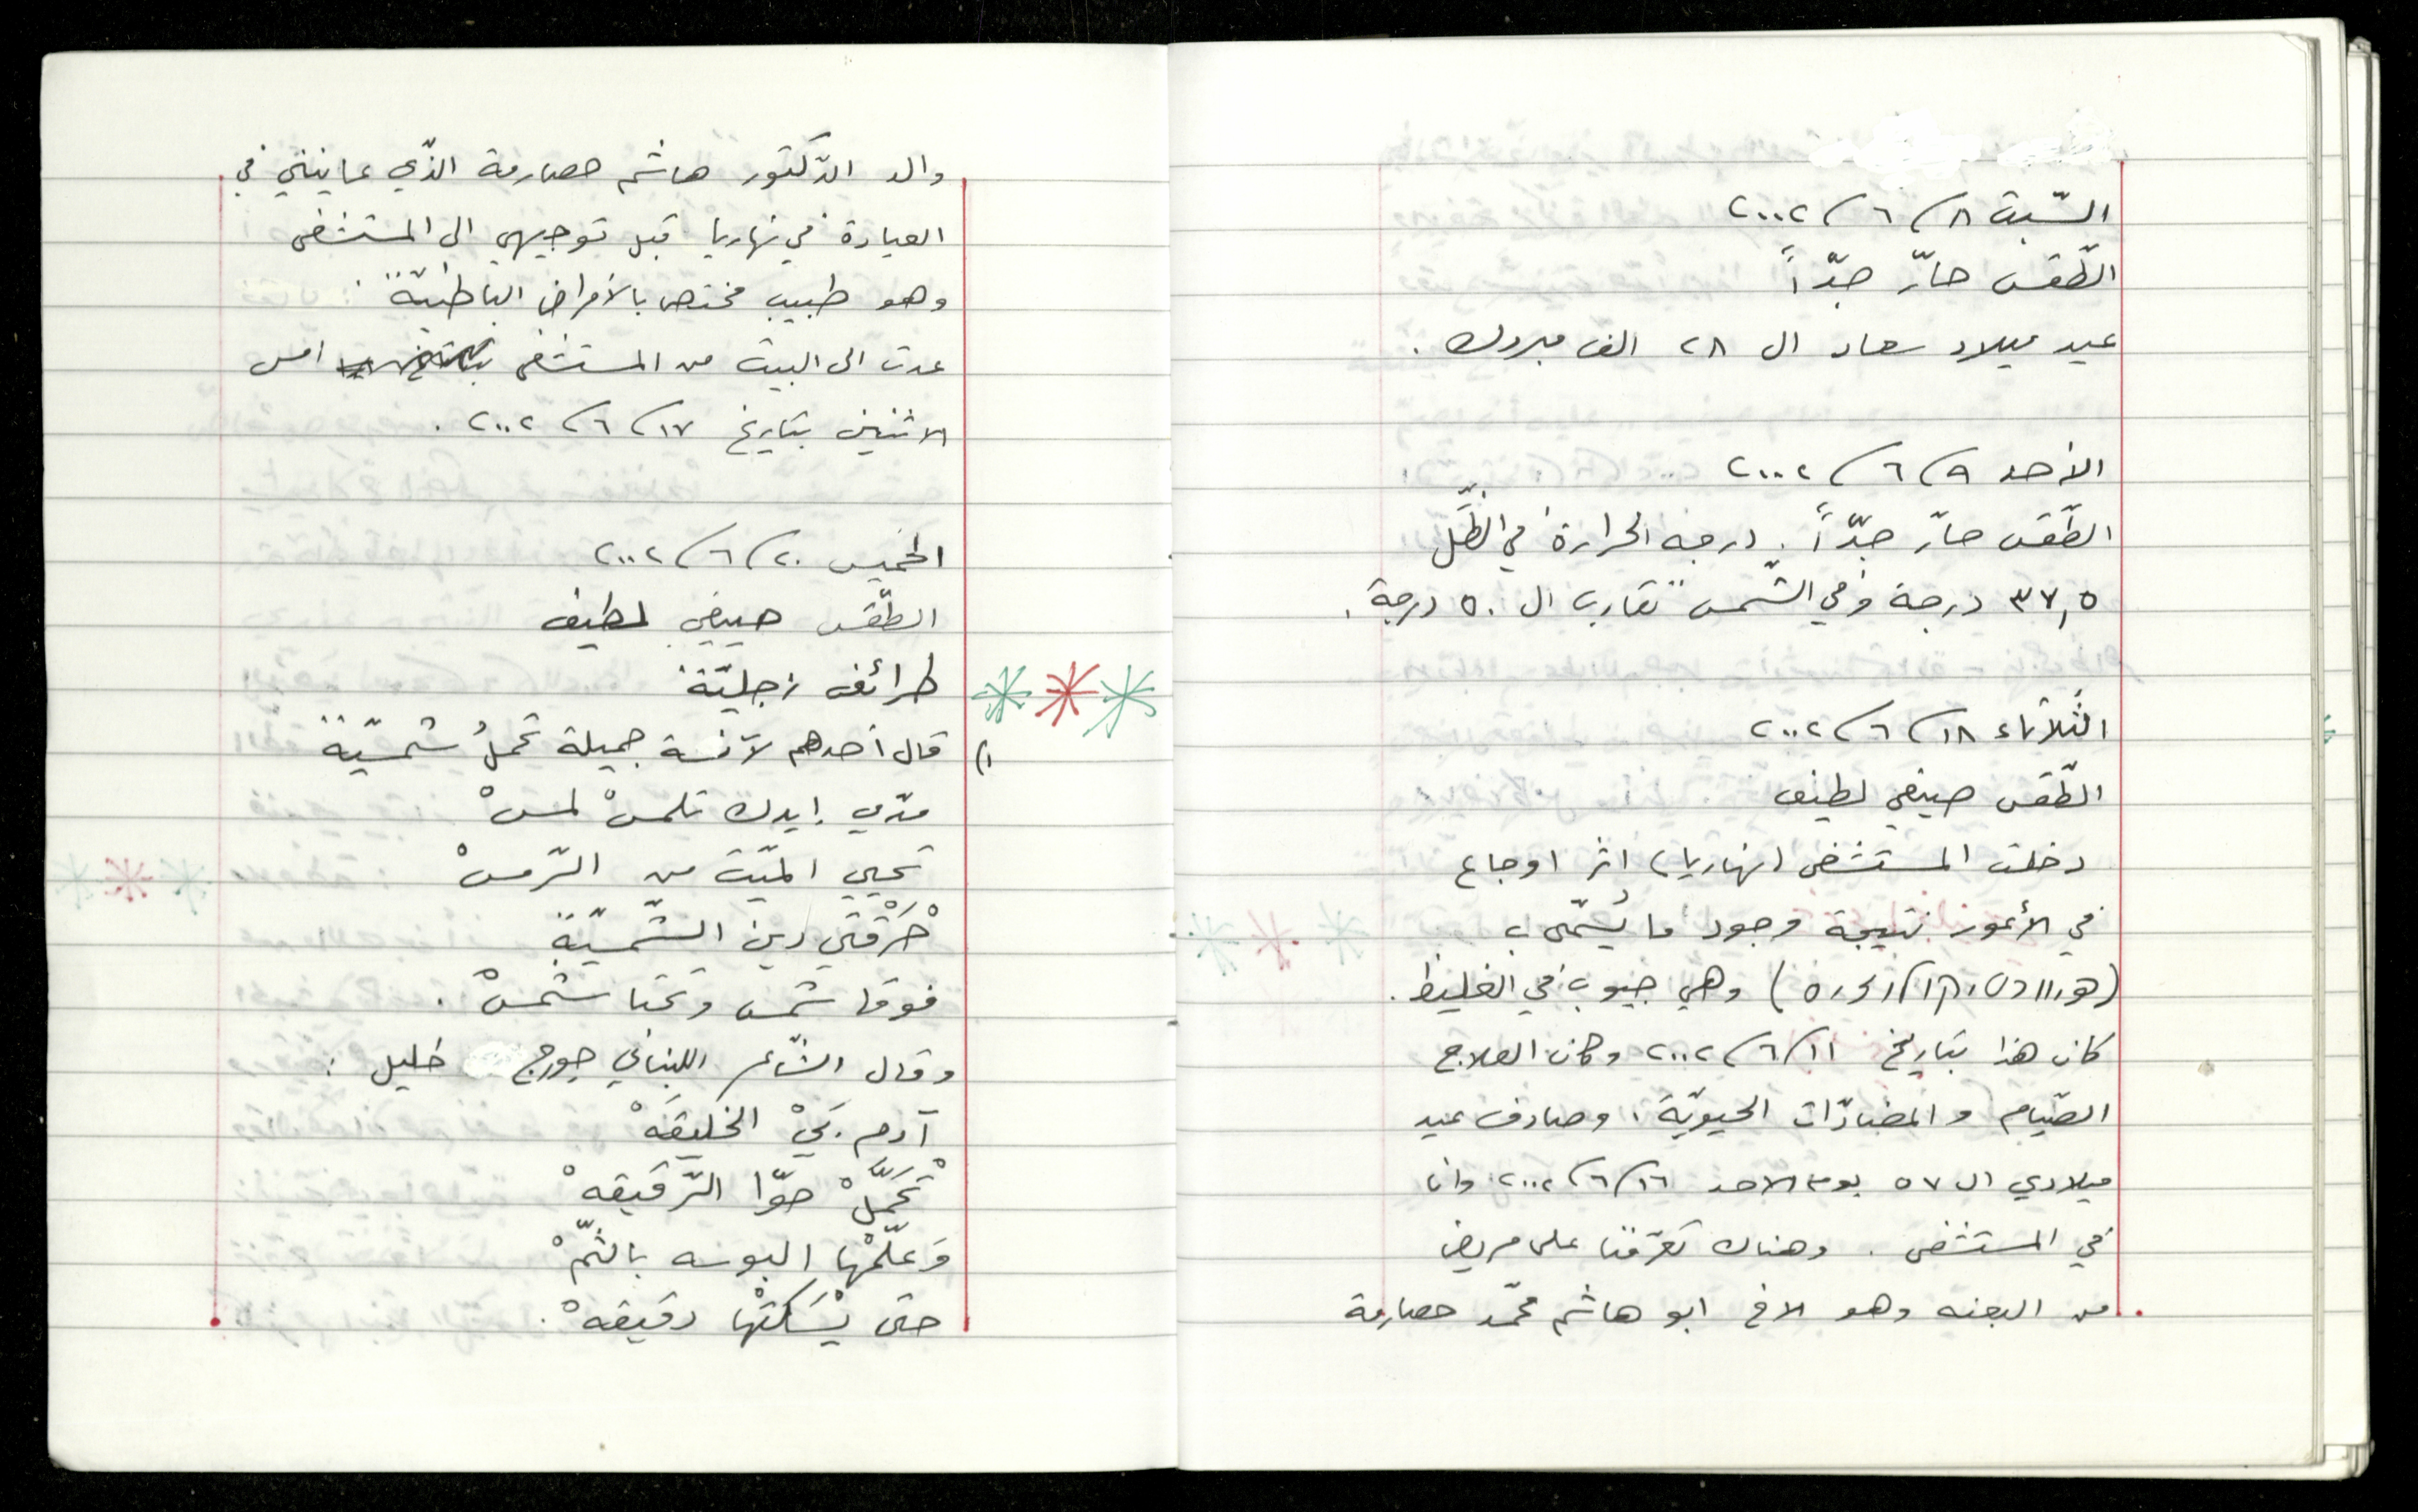 السّبت ٨/٦/٢٠٠٢
الطّقس حارّ جدّاً
عيد ميلاد سعاد ال ٢٨ الف مبروك.
الأحد ٩/٦/٢٠٠٢
الطّقس حارّ جدّاً. درجه الحرارة في الظّل
٣٧,٥ درجة وفي الشّمس تقارب ال ٥٠ درجة.
الثّلاثاء ١٨/٦/٢٠٠٢
الطّقس صيفي لطيف
دخلت المستشفى (نهاريا) اثر اوجاع
في الأعور نتيجة وجود ما يُسمّى ب
وهي جيوب في الغليظ.
كان هذا بتاريخ ١١/٦/٢٠٠٢ وكان العلاج
الصّيام و المضادّات الحيويّة، وصادف عيد
ميلادي ال ٥٧ يوم الاحد ١٦/٦/٢٠٠٢ وانا
في المستشفى. وهناك تعرّفنا على مريض
من البعنه وهو الاخ ابو هاشم محمّد حصارمة
والد الدّكتور هاشم حصارمة الذّي عاينني في
العيادة في نهاريا قبل توجيهي الى المستشفى
وهو طبيب مختص بالأمراض الباطنيّة.
عدت الى البيت من المستشفى امس
الاثنين بتاريخ ١٧/٦/٢٠٠٢.
الخميس ٢٠/٦/٢٠٠٢
الطّقس صيفي لطيف
طرائف زجليّة
١) قال أحدهم لآنسة جميلة تحملُ شمسيّة
مدّي إيدك تلمسْ لمسْ
تحيي الميّت من الرّمسْ
حْرَقْتي دين الشّمسيّة
فوقا شمس وتحتا شمسْ.
وقال الشّاعر اللبناني جورج خليل:
آدم بَيْ الخليقَهْ
تْحَمَّلْ حوّا الرّقيقهْ
وَعلّمْها البوسه بالتّمْ
حتى يْسَكتْها دقيقهْ.